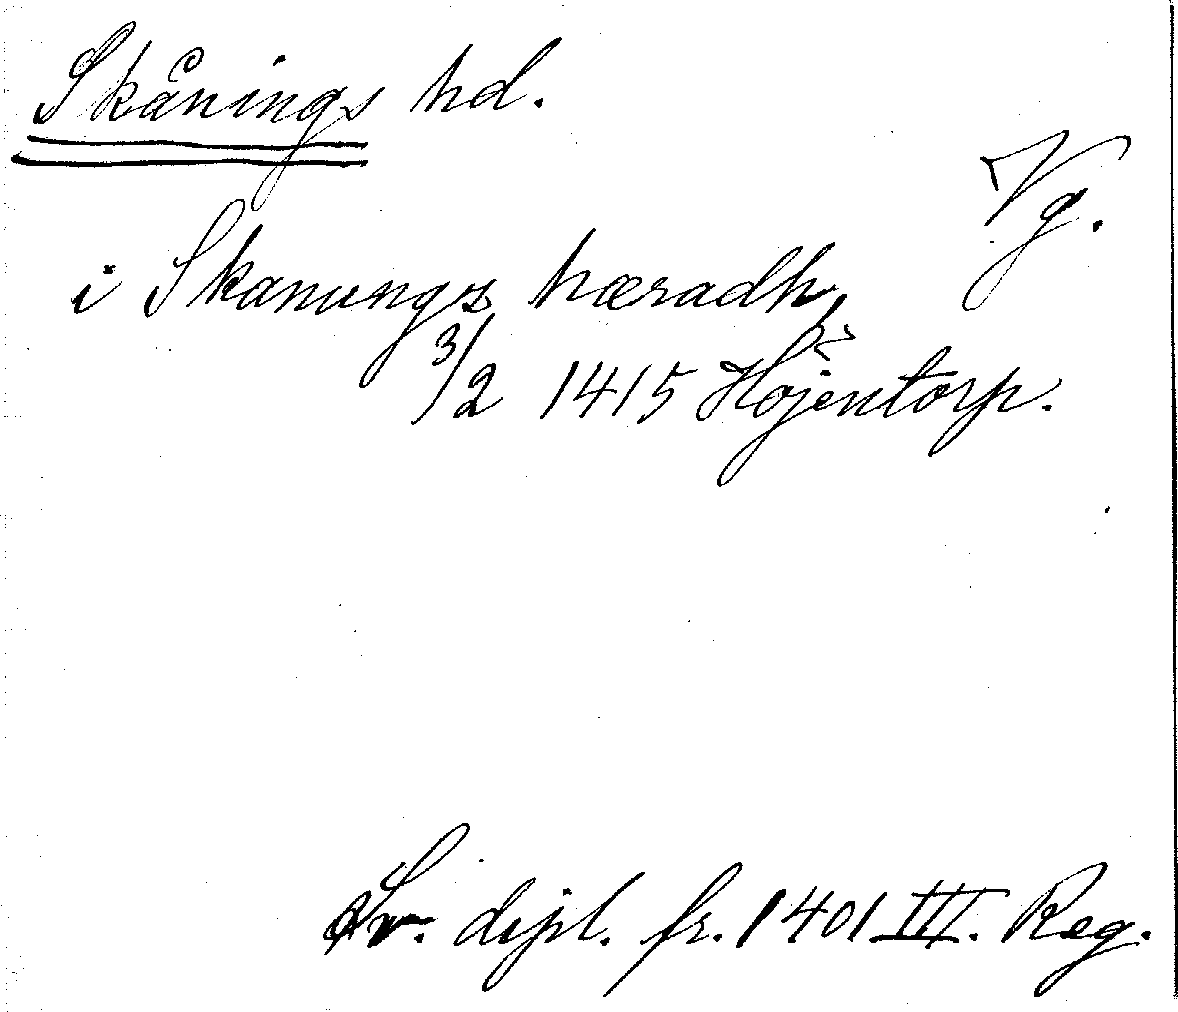 Skånings hd.
Vg.
i Skanungx hæradh,
3/2 1415 Höjentorp.
Sv. dipl. fr. 1401 III. Reg.